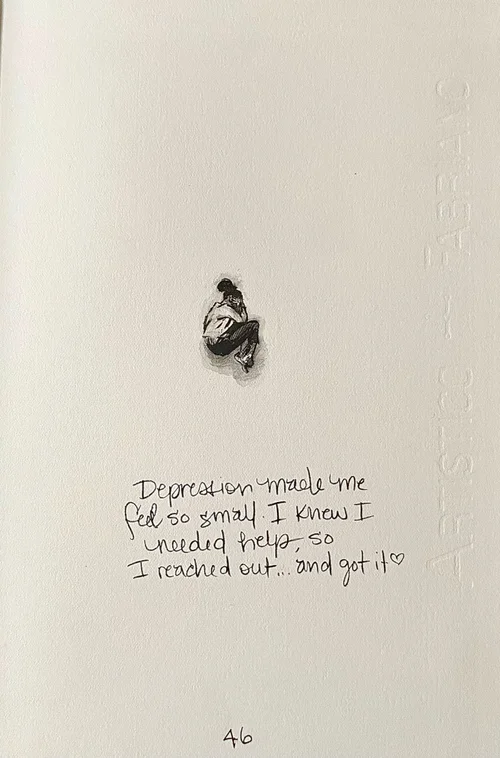 Depression made me
feel so small. I knew I
needed help, so
I reached out... and got it♡
46
ARTISTICO — FABRIANO